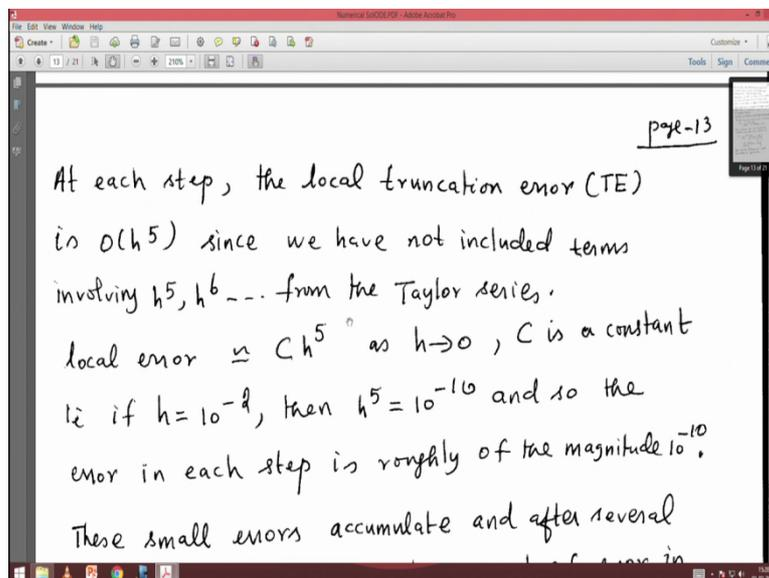 Numerical SolODE.PDF - Adobe Acrobat Pro
File Edit View Window Help
Create Customize
13 / 21 210% Tools Sign Comme
page-13
Page 13 of 21
At each step, the local truncation error (TE)
is O(h^5) since we have not included terms
involving h^5, h^6 --.. from the Taylor series.
local error ≃ Ch^5 as h→0, C is a constant
ie if h = 10^-2, then h^5 = 10^-10 and so the
error in each step is roughly of the magnitude 10^-10.
These small errors accumulate and after several